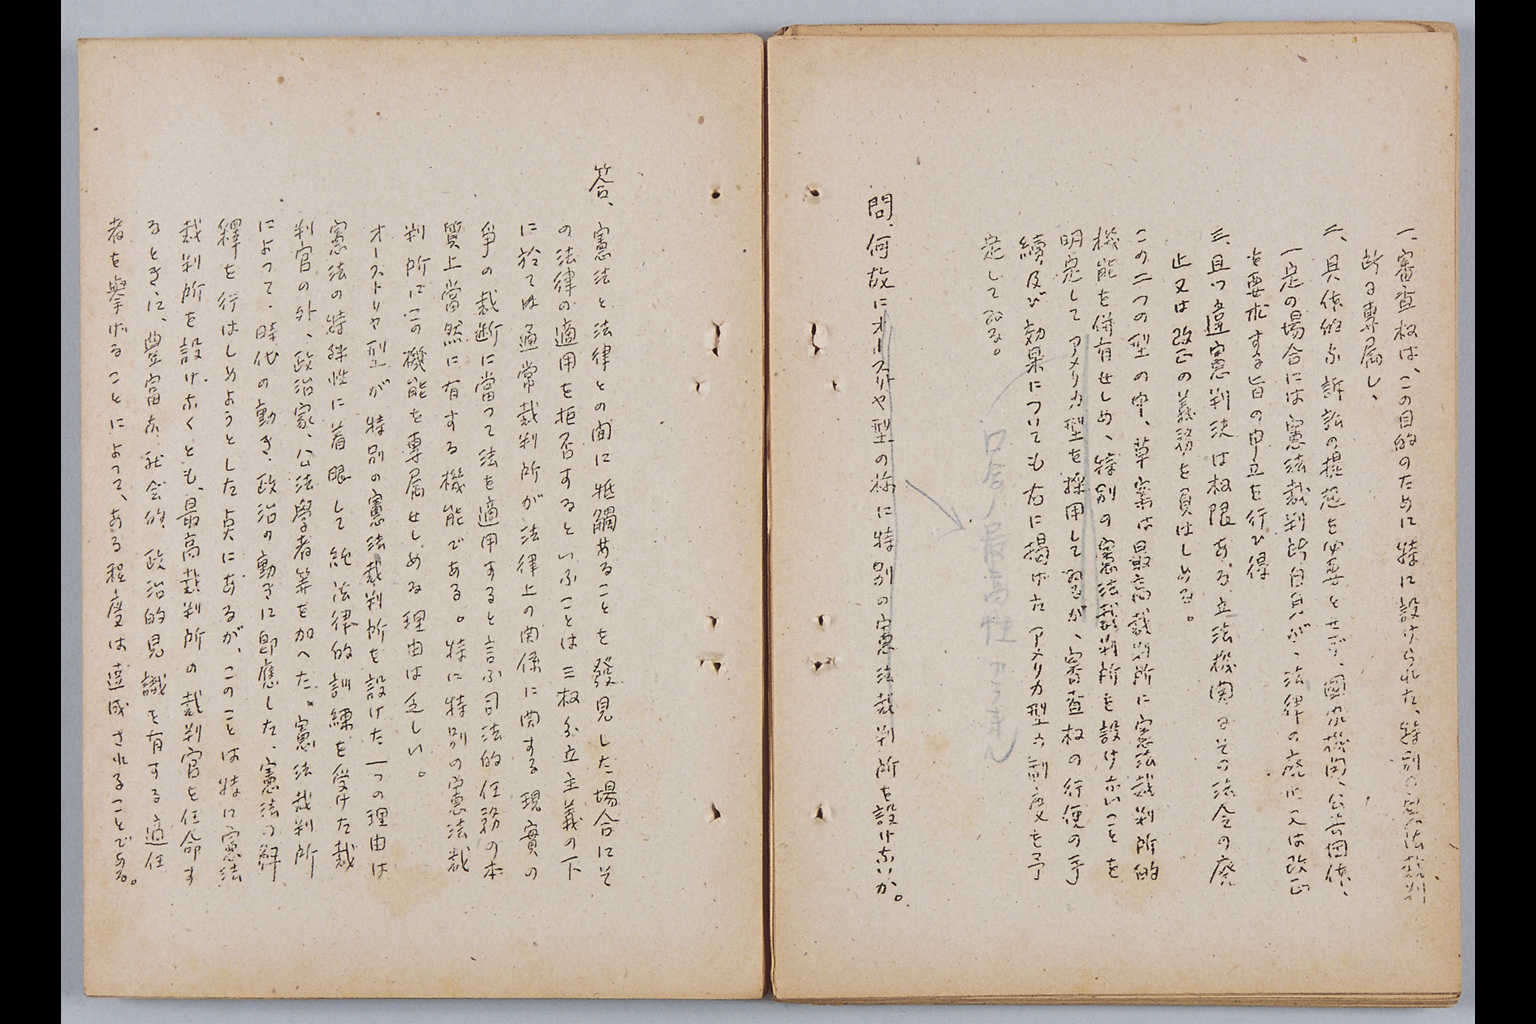 一、審査权は、この目的のために特に設けられた、特別の憲法裁判
所に専属し、
二、具体的な訴訟の提起を必要とせず、國家機関、公共団体、
一定の場合には憲法裁判所自身が、法律の廃止又は改正
を要求する旨の申立を行ひ得
三、且つ違憲判決は权限ある立法機関をその法令の廃
止又は改正の義務を負はしめる。
この二つの型の中、草案は最高裁判所に憲法裁判所的
機能を併有せしめ、特別の憲法裁判所を設けないことを
明定してアメリカ型を採用して居るが、審査权の行使の手
續及び効果についても右に掲げたアメリカ型の制度を予
定して居る。
最高性
問、何故にオーストリヤ型の様に特別の憲法裁判所を設けないか。
答、憲法と法律との間に牴觸あることを發見した場合にそ
の法律の適用を拒否するといふことは三权分立主義の下
に於ては通常裁判所が法律上の関係に関する現實の
爭の裁断に當つて法を適用すると言ふ司法的任務の本
質上當然に有する機能である。特に特別の憲法裁
判所にこの機能を専属せしめる理由は乏しい。
オーストリヤ型が特別の憲法裁判所を設けた一つの理由は
憲法の特殊性に着眼して純法律的訓練を受けた裁
判官の外、政治家、公法學者等を加へた、憲法裁判所
によつて、時代の動き、政治の動きに即應した、憲法の解
釋を行はしめようとした点にあるが、このことは特に憲法
裁判所を設けなくとも、最高裁判所の裁判官を任命す
るときに、豊富な社会的政治的見識を有する適任
者を擧げることによつて、ある程度は達成されることである。